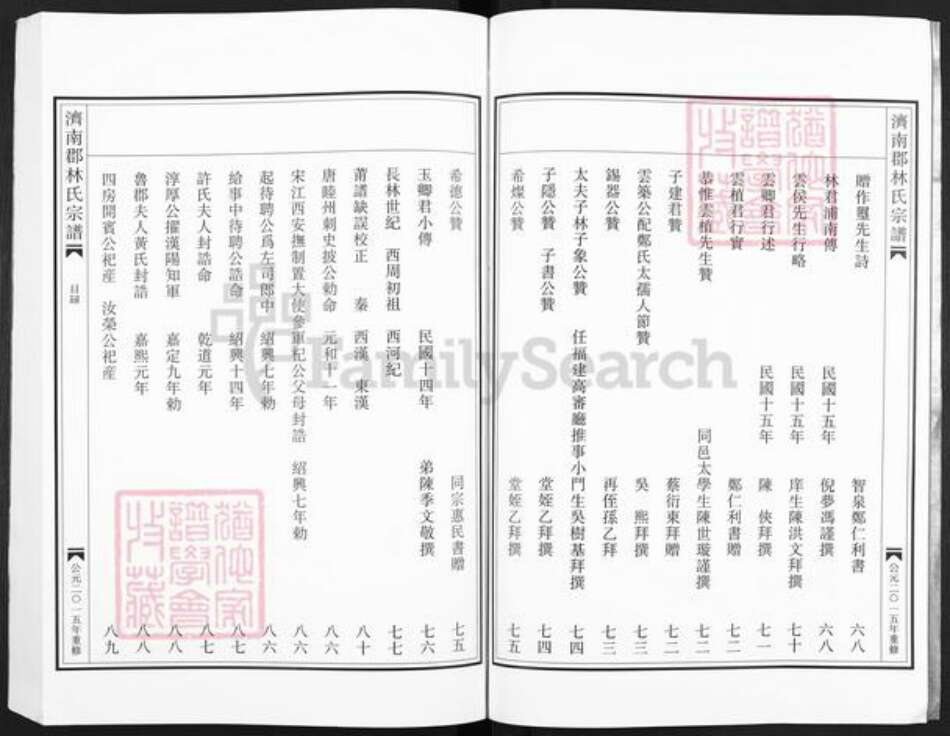 濟南郡林氏宗譜
公元二〇一五年重修
贈作璽先生詩 智泉鄭仁利書 六八
林君浦南傳 民國十五年 倪夢馮謹撰 六八
雲侯先生行略 民國十五年 庠生陳洪文拜撰 七十
雲卿君行述 民國十五年 陳 俠拜撰 七一
雲植君行實 鄭仁利書贈 七二
恭惟雲植先生贊 同邑太學生陳世璇謹撰 七二
子建君贊 蔡衍東拜贈 七二
雲築公配鄭氏太孺人節贊 吳 熙拜撰 七三
錫器公贊 再侄孫乙拜 七三
太夫子林子象公贊 任福建高審廳推事小門生吳樹基拜撰 七四
子隱公贊 子書公贊 堂姪乙拜撰 七四
希燦公贊 堂姪乙拜撰 七五
希德公贊 同宗惠民書贈 七五
玉卿君小傳 民國十四年 弟陳季文敬撰 七六
長林世紀 西周初祖 西河紀 七七
莆譜缺誤校正 秦 西漢 東漢 八十
唐睦州刺史披公勅命 元和十一年 八六
宋江西安撫制置大使參軍杞公父母封誥 紹興七年勅 八六
起待聘公爲左司郎中 紹興七年勅 八六
給事中待聘公誥命 紹興十四年 八七
許氏夫人封誥命 乾道元年 八七
淳厚公擢漢陽知軍 嘉定九年勅 八八
魯郡夫人黃氏封誥 嘉熙元年 八八
四房開賓公祀産 汝榮公祀産 八九
濟南郡林氏宗譜
目錄
公元二〇一五年重修
FamilySearch